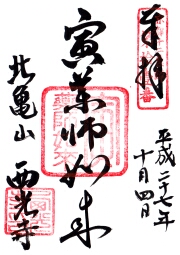 奉拝
平成二十七年
十月四日
寅薬師如来
北亀山
西光寺